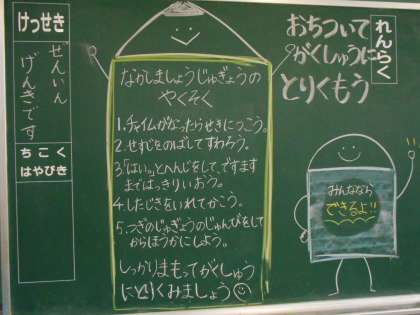 けっせき
ぜんいん
げんきです
ちこく
はやびき
なかしましょうじゅぎょうの
やくそく
1.チャイムがなったらせきにつこう。
2.せすじをのばしてすわろう。
3.「はいっ」とへんじをして、ですます
まではっきりいおう。
4.したじきをいれてかこう。
5.つぎのじゅぎょうのじゅんびをして
からほうかにしよう。
しっかりまもってがくしゅう
にとりくみましょう
れんらく
おちついて
がくしゅうに
とりくもう
みんななら
できるよ!!